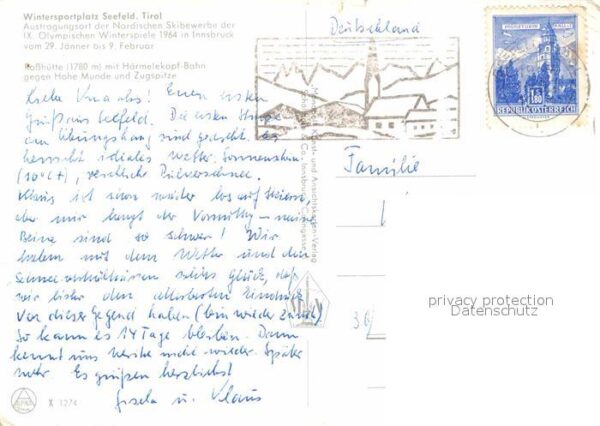 Wintersportplatz Seefeld. Tirol
Austragungsort der Nordischen Skibewerbe der
IX. Olympischen Winterspiele 1964 in Innsbruck
vom 29. Jänner bis 9. Februar
Roßhütte (1780 m) mit Härmelekopf-Bahn
gegen Hohe Munde und Zugspitze
Deutschland
REPUBLIK ÖSTERREICH
Familie
Euch ersten
Gruß aus Seefeld. Die ersten
am Übungshang sind gerutscht. Es
herrscht ideales Wetter: Sonnenschein
(10°C+), Pulverschnee.
Klaus ist schon wieder los auf
aber mir langt der Vormittag – meine
Beine sind so schwer! Wir
haben mit dem Wetter und den
Schneeverhältnissen solches Glück, daß
wir bisher den allerbesten Eindruck
von dieser Gegend haben (bin wieder zurück)
So kann es 14 Tage bleiben. Dann
kennt uns wieder. Später
mehr. Es grüßen herzlichst
Gisela u. Klaus
privacy protection
Datenschutz
30
X 1274